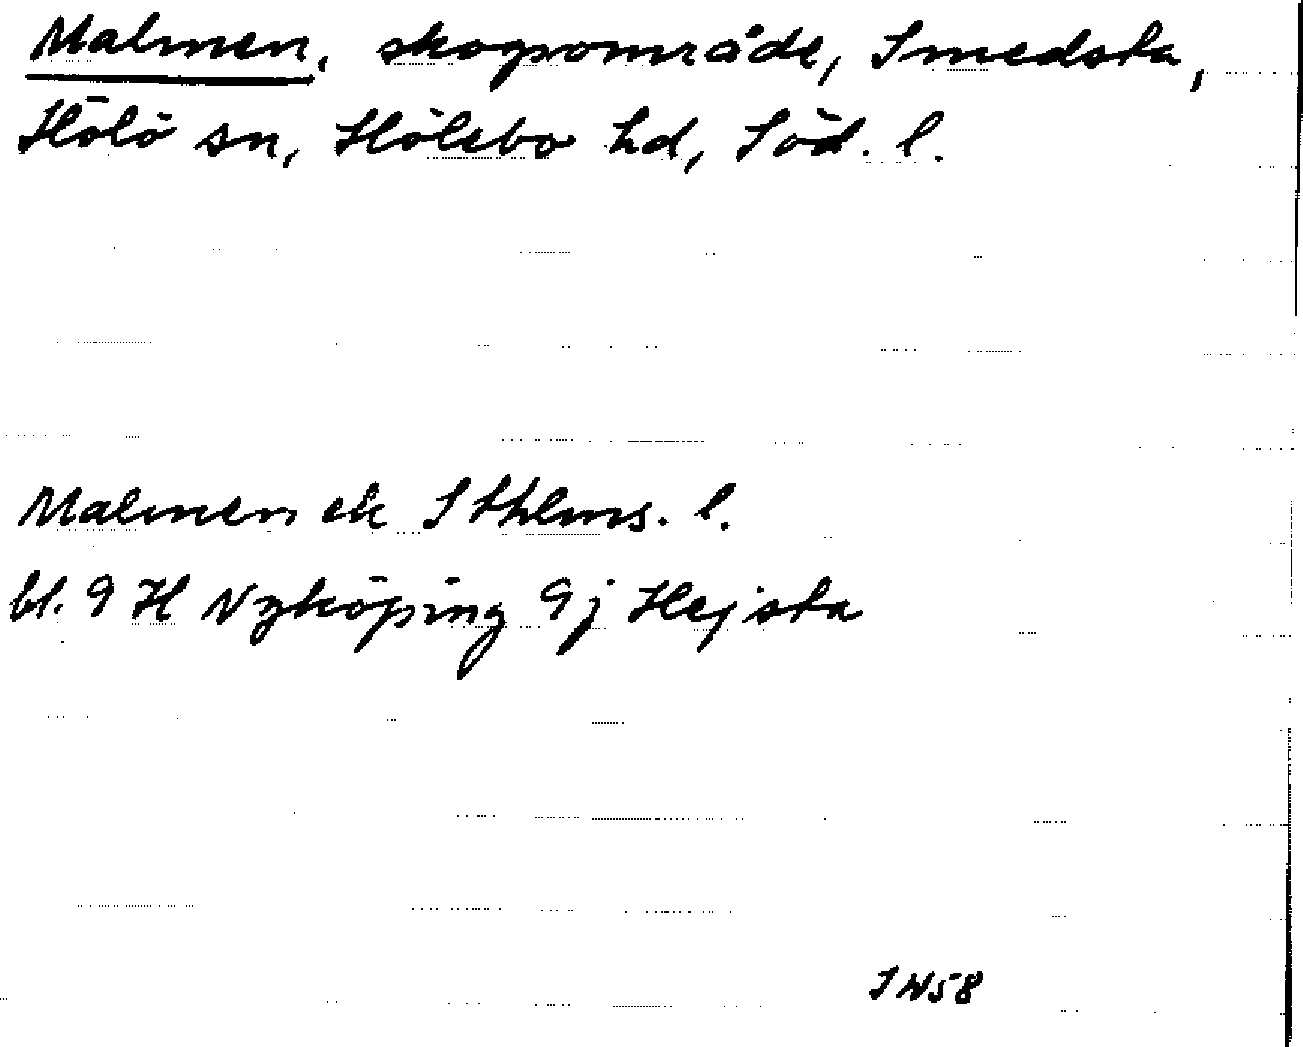 Malmen, skogsområde, Smedsta,
Hölö sn, Hölebo hd, Söd. l.
Malmen ek Sthlms. l.
bl. 9 H Nyköping 9j Hejsta
SW58